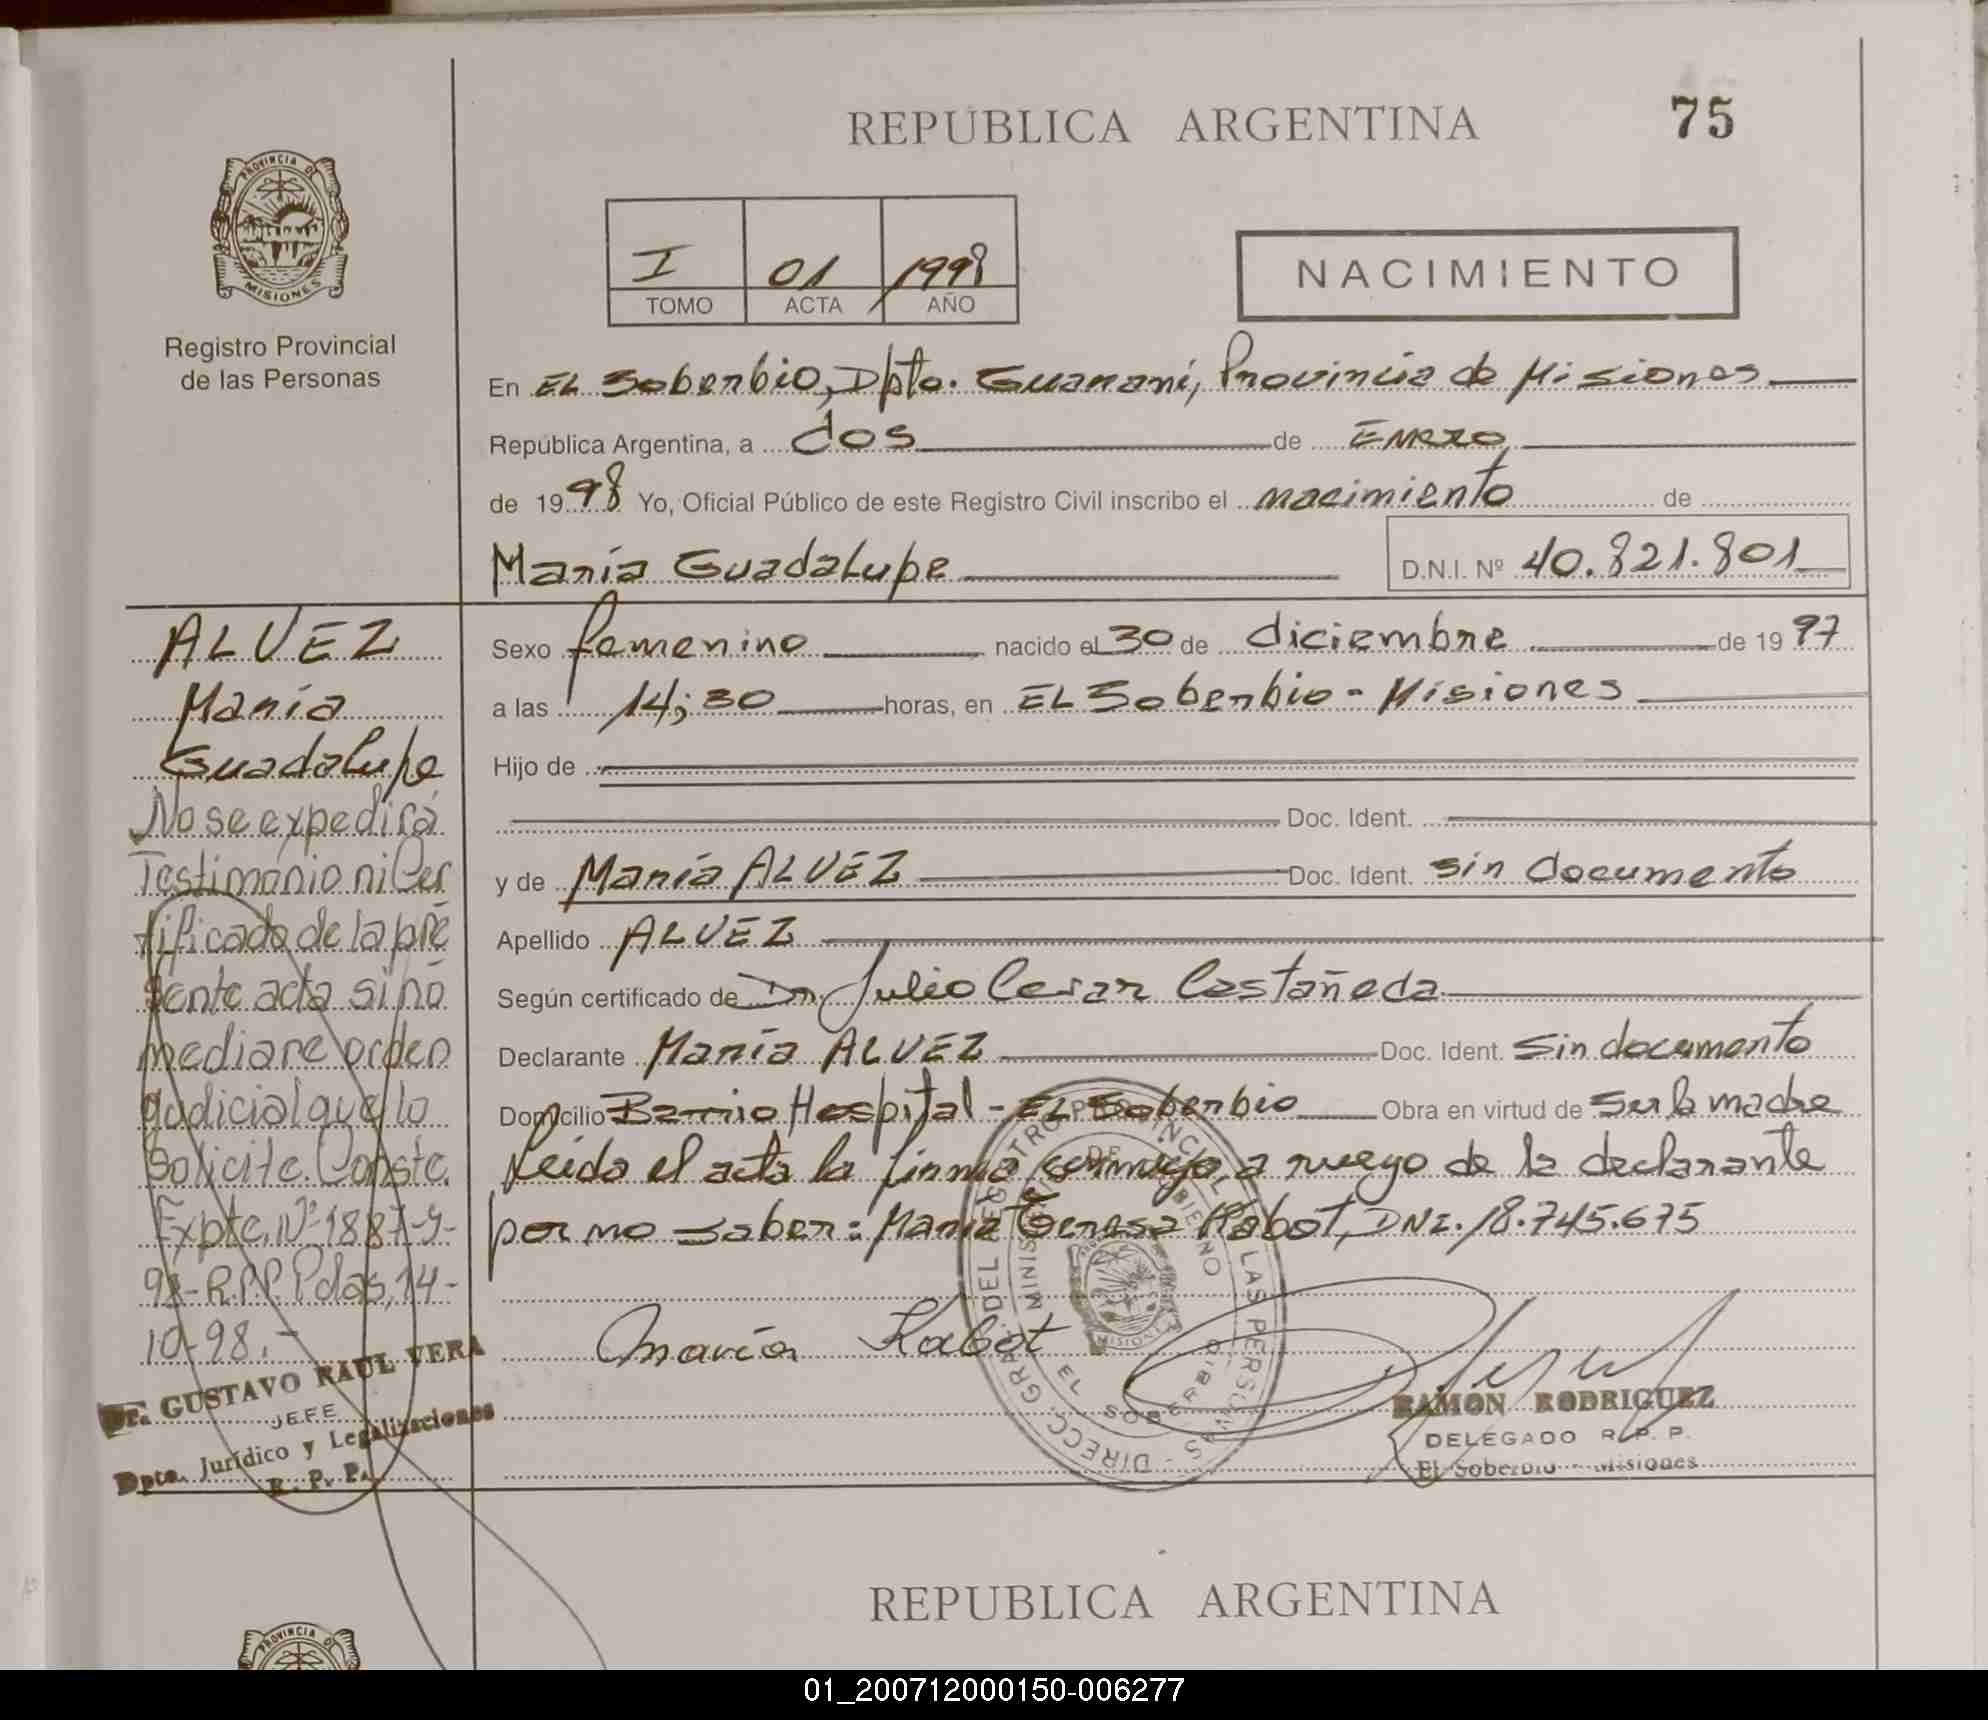 REPUBLICA ARGENTINA 75
PROVINCIA DE
MISIONES
Registro Provincial
de las Personas
I 01 1998
TOMO ACTA AÑO
NACIMIENTO
En EL Soberbio, Dpto. Guaraní, Provincia de Misiones
República Argentina, a dos de Enero
de 1998 Yo, Oficial Público de este Registro Civil inscribo el nacimiento de
María Guadalupe D.N.I. Nº 40.821.801
Sexo femenino nacido el 30 de diciembre de 1997
a las 14;30 horas, en EL Soberbio - Misiones
Hijo de
Doc. Ident.
y de María ALVEZ Doc. Ident. sin documento
Apellido ALVEZ
Según certificado de Dr. Julio Cesar Castañeda
Declarante María ALVEZ Doc. Ident. Sin documento
Domicilio Barrio Hospital - EL Soberbio Obra en virtud de Ser la madre
Leida el acta la firma conmigo a ruego de la declarante
por no saber: María Teresa Kabot, DNI. 18.745.675
María Kabot
DIRECC. GRAL. DEL REGISTRO PROVINCIAL DE LAS PERSONAS
MINISTERIO DE GOBIERNO
MISIONES
EL SOBERBIO
RAMON RODRIGUEZ
DELEGADO R. P. P.
El Soberbio - Misiones
ALVEZ
María
Guadalupe
No se expedirá
Testimonio ni Cer
tificado de la pre
sente acta si no
mediare orden
judicial que lo
solicite. Conste.
Expte. Nº 1887-9-
98-R.P.P. Pdas, 14-
10-98.-
Dr. GUSTAVO RAUL VERA
JEFE
Dpto. Jurídico y Legalizaciones
R. P. P.
REPUBLICA ARGENTINA
PROVINCIA DE
01_200712000150-006277